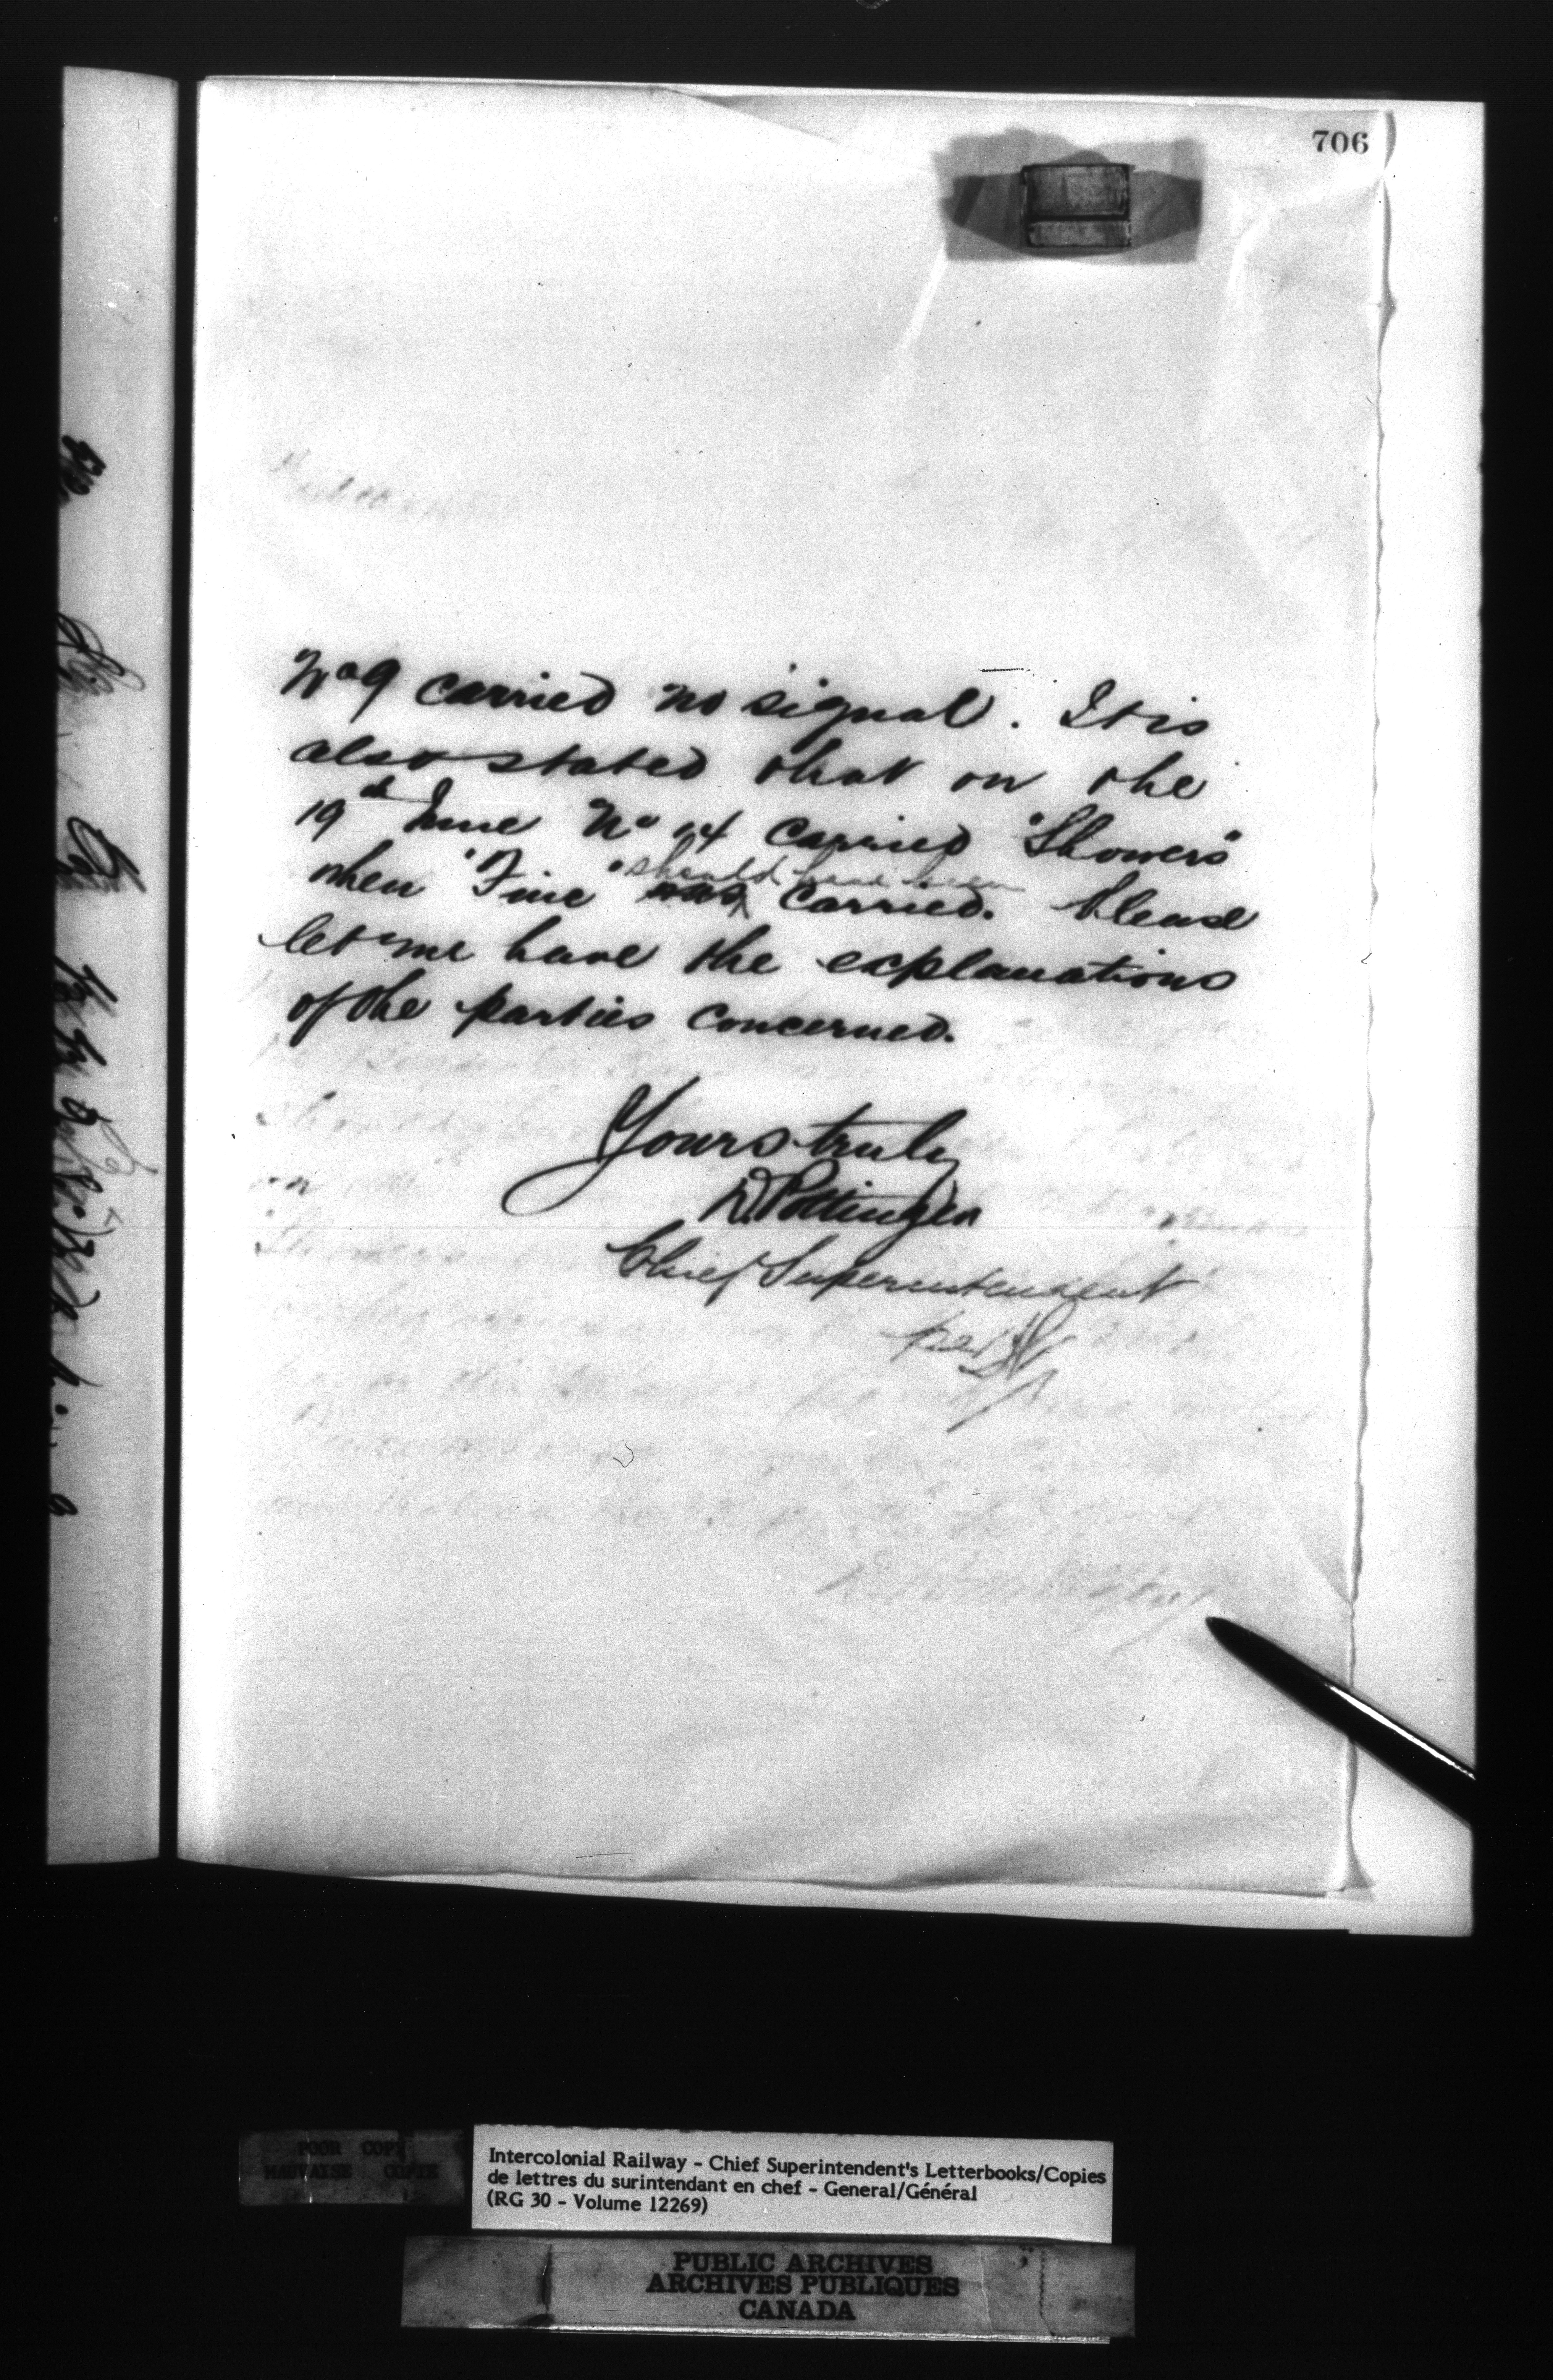 706
No 9 carried no signal. It is
also stated that on the
19th June No 14 carried "Showers"
when "Fine" was should have been carried. Please
let me have the explanations
of the parties concerned.
Yours truly
D. Pottinger
Chief Superintendent
per
POOR COPY
MAUVAISE COPIE
Intercolonial Railway - Chief Superintendent's Letterbooks/Copies
de lettres du surintendant en chef - General/Général
(RG 30 - Volume 12269)
PUBLIC ARCHIVES
ARCHIVES PUBLIQUES
CANADA